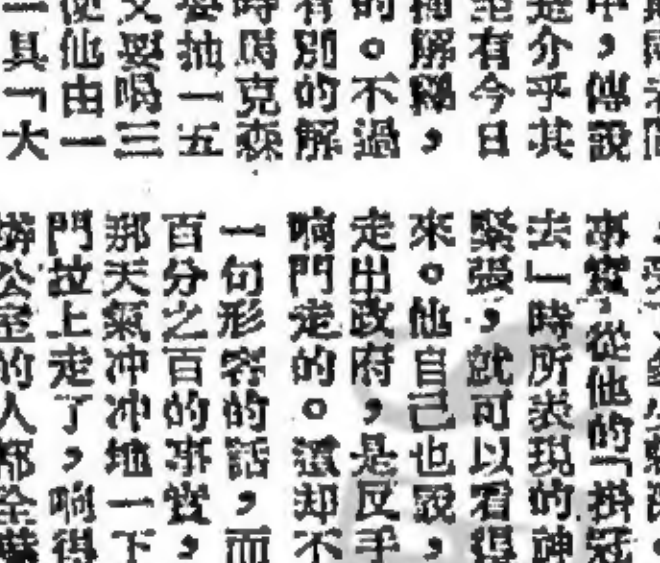 中，傳說
是介乎其
至有今日
種解釋，
的。不過
有別的解
時馬克森
要抽一五
又要喝三
使他由一
一具「大
事實，從他的「掛冠
去」時所表現的神
緊張，就可以看得
來。他自己也說，
走出政府，是反手
嚮門走的。這却不
一句形容的話，而
百分之百的事實，
那天氣冲冲地一下
門故上走了，响得
公室的人都全嚇